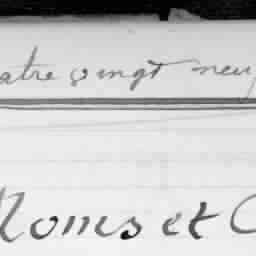 atre vingt neuf
Noms et